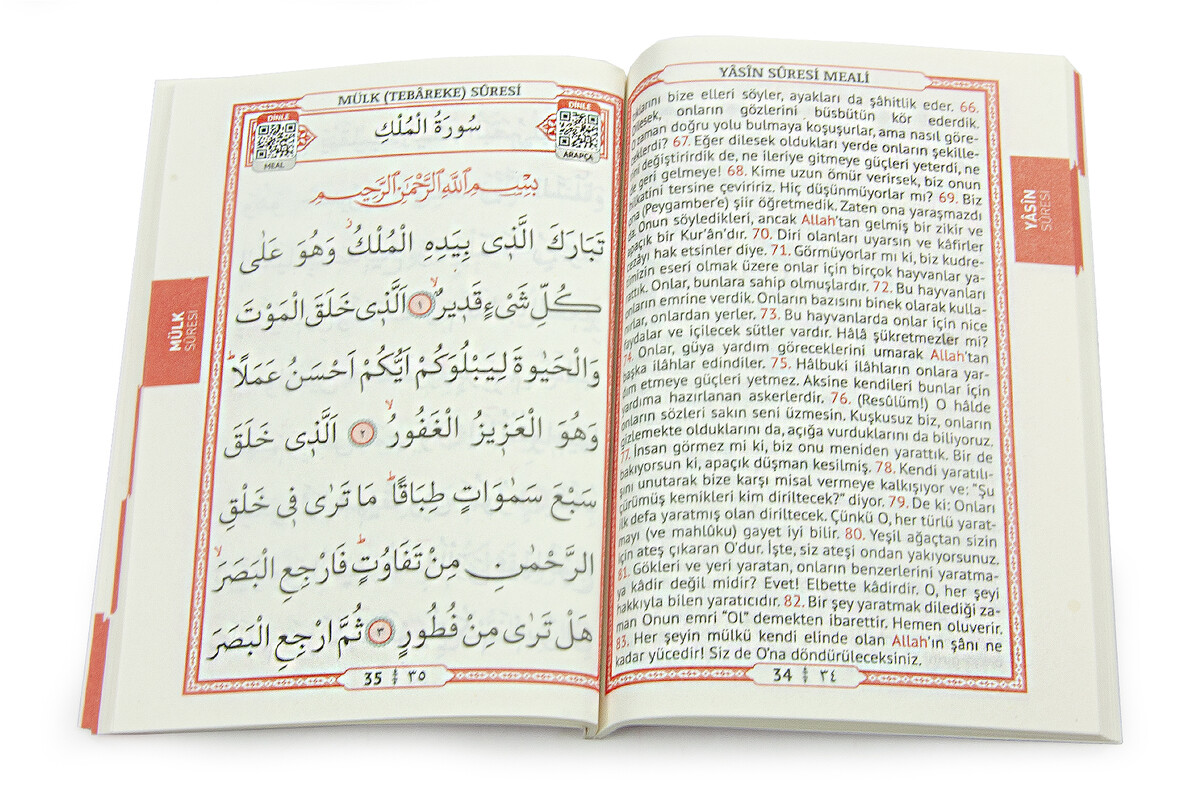 YÂSÎN SÛRESİ MEALİ
bize elleri söyler, ayakları da şâhitlik eder. 66.
dilesek, onların gözlerini büsbütün kör ederdik.
zaman doğru yolu bulmaya koşuşurlar, ama nasıl göre-
ceklerdi? 67. Eğer dilesek oldukları yerde onların şekille-
rini değiştirirdik de, ne ileriye gitmeye güçleri yeterdi, ne
de geri gelmeye! 68. Kime uzun ömür verirsek, biz onun
hilkatini tersine çeviririz. Hiç düşünmüyorlar mı? 69. Biz
ona (Peygamber'e) şiir öğretmedik. Zaten ona yaraşmazdı
da. Onun söyledikleri, ancak Allah'tan gelmiş bir zikir ve
apaçık bir Kur'ân'dır. 70. Diri olanları uyarsın ve kâfirler
cezâyı hak etsinler diye. 71. Görmüyorlar mı ki, biz kudre-
timizin eseri olmak üzere onlar için birçok hayvanlar ya-
rattık. Onlar, bunlara sahip olmuşlardır. 72. Bu hayvanları
onların emrine verdik. Onların bazısını binek olarak kulla-
nırlar, onlardan yerler. 73. Bu hayvanlarda onlar için nice
faydalar ve içilecek sütler vardır. Hâlâ şükretmezler mi?
74. Onlar, güya yardım göreceklerini umarak Allah'tan
başka ilâhlar edindiler. 75. Hâlbuki ilâhların onlara yar-
dım etmeye güçleri yetmez. Aksine kendileri bunlar için
yardıma hazırlanan askerlerdir. 76. (Resûlüm!) O hâlde
onların sözleri sakın seni üzmesin. Kuşkusuz biz, onların
gizlemekte olduklarını da, açığa vurduklarını da biliyoruz.
77. İnsan görmez mi ki, biz onu meniden yarattık. Bir de
bakıyorsun ki, apaçık düşman kesilmiş. 78. Kendi yaratılı-
şını unutarak bize karşı misal vermeye kalkışıyor ve: "Şu
çürümüş kemikleri kim diriltecek?" diyor. 79. De ki: Onları
ilk defa yaratmış olan diriltecek. Çünkü O, her türlü yarat-
mayı (ve mahlûku) gayet iyi bilir. 80. Yeşil ağaçtan sizin
için ateş çıkaran O'dur. İşte, siz ateşi ondan yakıyorsunuz.
81. Gökleri ve yeri yaratan, onların benzerlerini yaratma-
ya kâdir değil midir? Evet! Elbette kâdirdir. O, her şeyi
hakkıyla bilen yaratıcıdır. 82. Bir şey yaratmak dilediği za-
man Onun emri "Ol" demekten ibarettir. Hemen oluverir.
83. Her şeyin mülkü kendi elinde olan Allah'ın şânı ne
kadar yücedir! Siz de O'na döndürüleceksiniz.
34 ٣٤
YÂSÎN
SÛRESİ
MÜLK (TEBÂREKE) SÛRESİ
DİNLE
MEAL
سُورَةُ الْمُلْكِ
DİNLE
ARAPÇA
بِسْمِ اللهِ الرَّحْمٰنِ الرَّحِيمِ
تَبَارَكَ الَّذ۪ى بِيَدِهِ الْمُلْكُۘ وَهُوَ عَلٰى
كُلِّ شَىْءٍ قَد۪يرٌۙ ﴿١﴾ اَلَّذ۪ى خَلَقَ الْمَوْتَ
وَالْحَيٰوةَ لِيَبْلُوَكُمْ اَيُّكُمْ اَحْسَنُ عَمَلًاۜ
وَهُوَ الْعَز۪يزُ الْغَفُورُۙ ﴿٢﴾ اَلَّذ۪ى خَلَقَ
سَبْعَ سَمٰوَاتٍ طِبَاقًاۜ مَا تَرٰى ف۪ى خَلْقِ
الرَّحْمٰنِ مِنْ تَفَاوُتٍۜ فَارْجِعِ الْبَصَرَۙ
هَلْ تَرٰى مِنْ فُطُورٍ ﴿٣﴾ ثُمَّ ارْجِعِ الْبَصَرَ
35 ٣٥
MÜLK
SÛRESİ